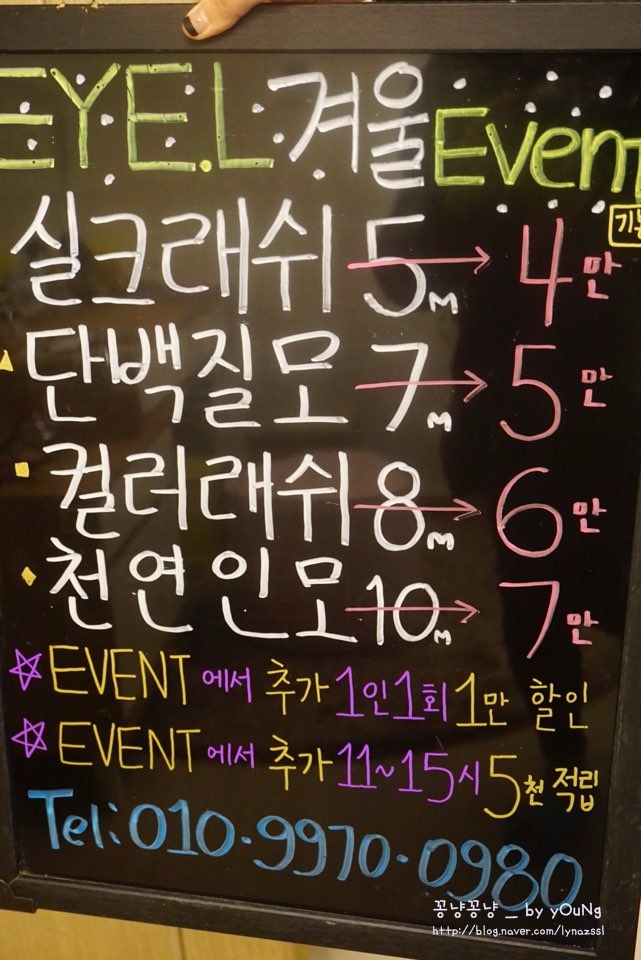 EYE.L 겨울 Event
실크래쉬 5M → 4만
단백질모 7M → 5만
컬러래쉬 8M → 6만
천연인모 10M → 7만
EVENT 에서 추가 1인1회 1만 할인
EVENT 에서 추가 11~15시 5천 적립
Tel:010-9970-0980
꽁냥꽁냥 _ by yOuNg
http://blog.naver.com/lynazssl